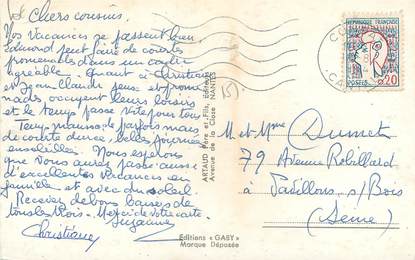 Chers cousins.
Vos Vacances se passent bien
Edmond peut faire de courtes
promenades dans un cadre
agréable. Quant à Christian
et Jean Claude jeux et prome
nades occupent leurs loisirs
et le temps passe vite pour tous
Temps maussade parfois mais
de courte durée belles journées
ensoleillées. Nous espérons
que vous aurez passé aussi
d'excellentes Vacances en
famille et avec du soleil
Recevez de bons baisers de
tous les trois. Merci de votre carte.
Suzanne
Christiane
ARTAUD Père et Fils, Éditeurs
Avenue de la Close NANTES
Editions « GABY »
Marque Déposée
REPUBLIQUE FRANÇAISE
POSTES 0,20
M et Mme Dumet
79 Avenue Robillard
à Pavillons s/ Bois
(Seine)